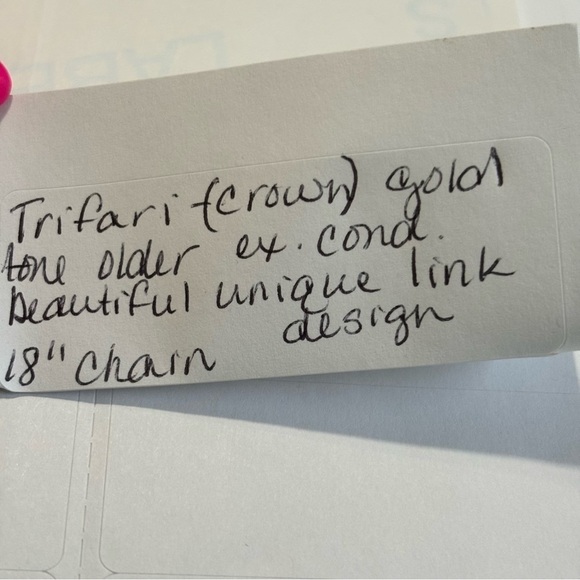 Trifari (crown) gold
tone older ex. cond.
beautiful unique link
design
18" chain